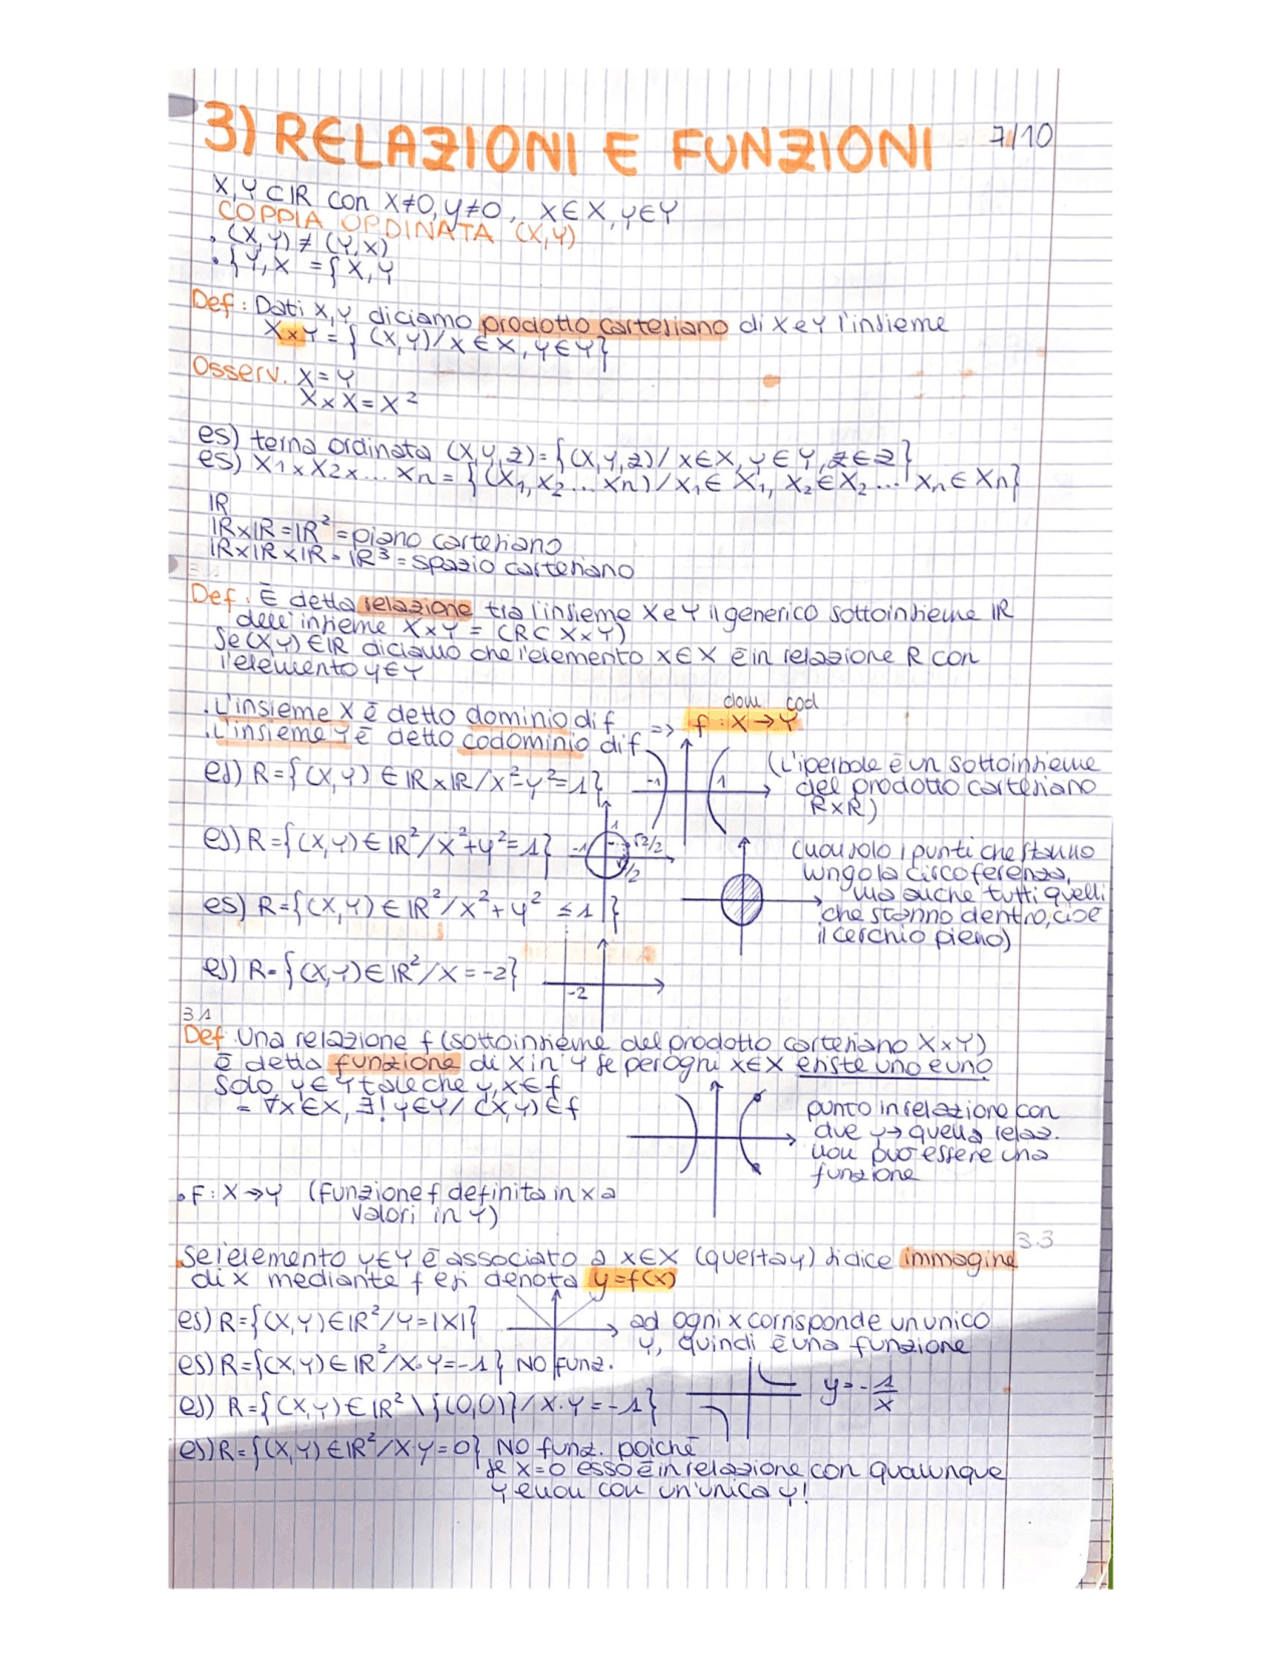 3) RELAZIONI E FUNZIONI 7/10
X,Y ⊂ IR con X≠0, Y≠0, x∈X, y∈Y
COPPIA ORDINATA (X,Y)
• (X,Y) ≠ (Y,X)
• {Y,X = {X,Y
Def: Dati X,Y diciamo prodotto cartesiano di X e Y l'insieme
X×Y = { (X,Y)/ X∈X, Y∈Y}
Osserv. X=Y
X×X=X²
es) terna ordinata (X,Y,Z)={(X,Y,Z)/ X∈X, Y∈Y, Z∈Z}
es) X1×X2×... Xn = {(X₁,X₂... Xn)/X₁∈ X₁, X₂∈X₂... Xn∈Xn}
IR
IR×IR=IR²=piano cartesiano
IR×IR×IR=IR³=spazio cartesiano
Def: È detta relazione tra l'insieme X e Y il generico sottoinsieme IR
dell'insieme X×Y = (R⊂X×Y)
Se (X,Y)∈IR diciamo che l'elemento x∈X è in relazione R con
l'elemento y∈Y
dom cod
.L'insieme X è detto dominio di f => f: X→Y
.L'insieme Y è detto codominio di f
es) R={(X,Y)∈IR×IR/X²-Y²=1} -1 1 (L'iperbole è un sottoinsieme
del prodotto cartesiano
R×R)
es) R={(X,Y)∈IR²/X²+Y²=1} 1 -1 √2/2
(non solo i punti che stanno
lungo la circoferenza,
es) R={(X,Y)∈IR²/X²+Y² ≤1} ma anche tutti quelli
che stanno dentro, cioè
il cerchio pieno)
es) R={(X,Y)∈IR²/X=-2} -2
3.1
Def Una relazione f (sottoinsieme del prodotto cartesiano X×Y)
è detta funzione di X in Y se per ogni x∈X esiste uno e uno
solo y∈Y tale che y,x∈f
= ∀x∈X, ∃! y∈Y/ (X,Y)∈f
punto in relazione con
due y→ quella relaz.
non può essere una
funzione
• F: X→Y (funzione f definita in x a
valori in Y)
3.3
.Se l'elemento y∈Y è associato a x∈X (questa y) si dice immagine
di x mediante f e si denota y=f(x)
es) R={(X,Y)∈IR²/Y=|X|} ad ogni x corrisponde un unico
y, quindi è una funzione
es) R={(X,Y)∈IR²/X·Y=-1} NO funz.
es) R={(X,Y)∈IR²\{(0,0)}/X·Y=-1} y=-1/x
es) R={(X,Y)∈IR²/X·Y=0} NO funz. poiché
se x=0 esso è in relazione con qualunque
y e non con un'unica y!